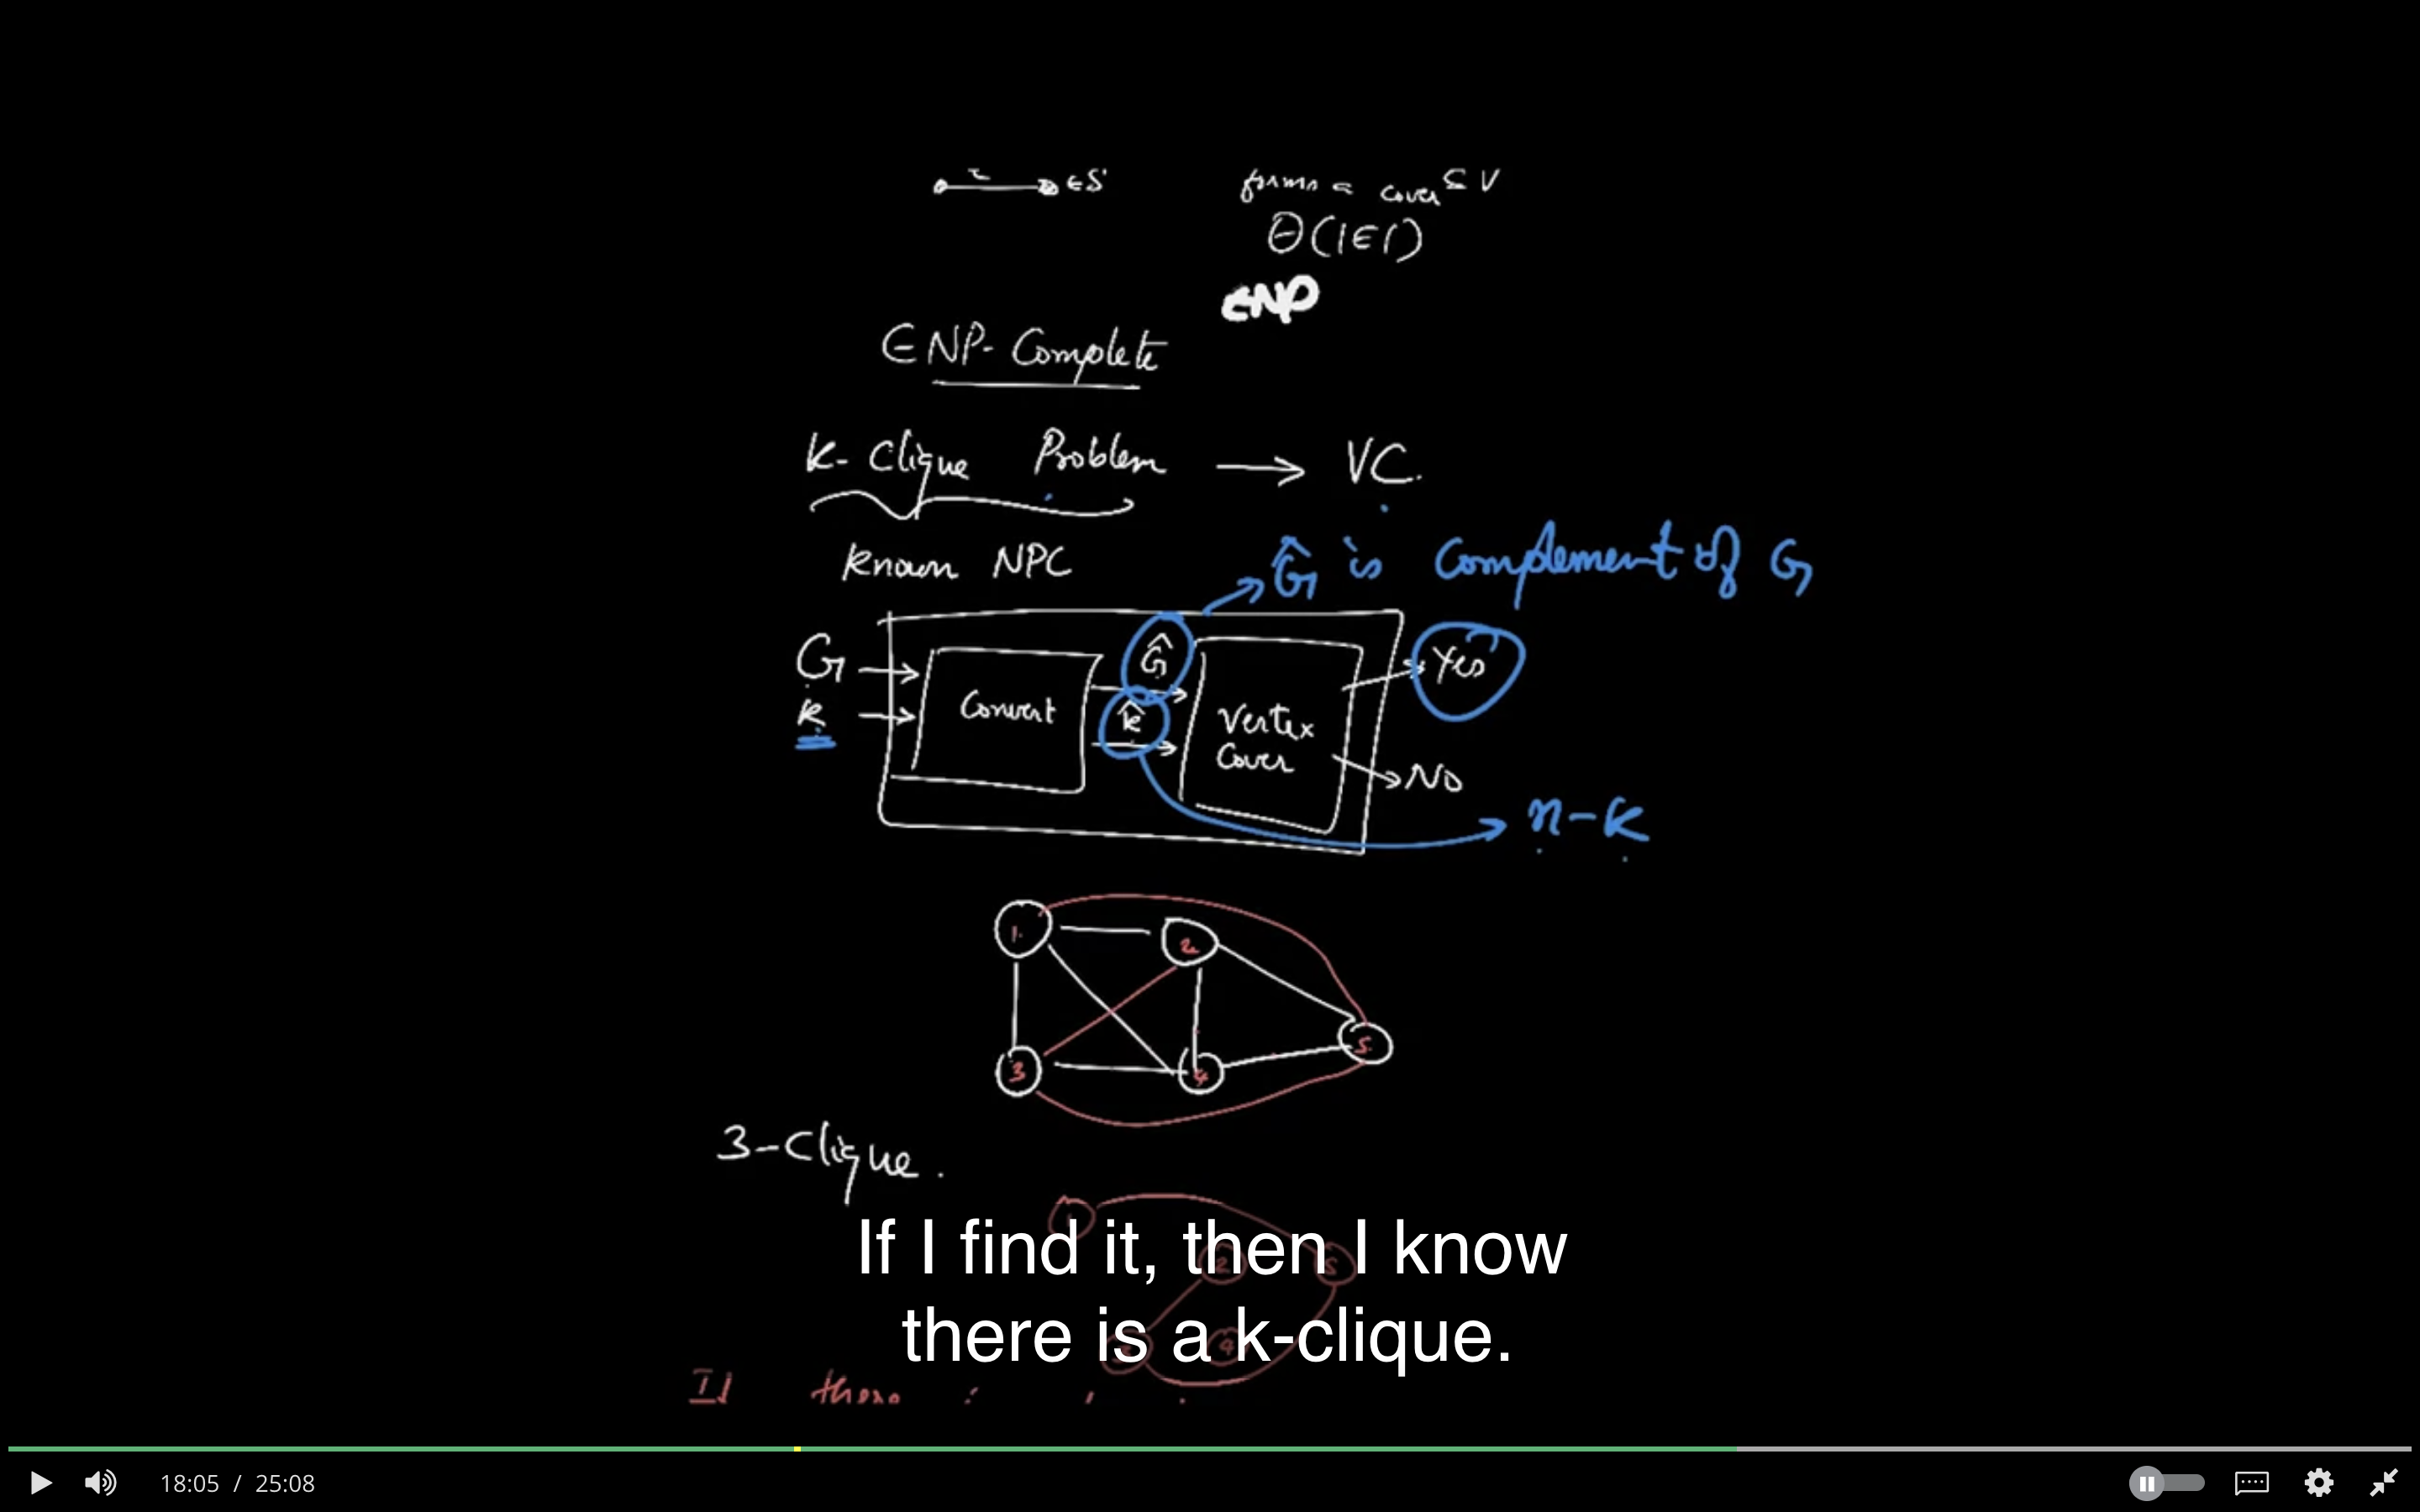 ∈ S
forms a cover ⊆ V
Θ(|E|)
∈NP
∈ NP-Complete
k-Clique Problem → VC.
known NPC
Ĝ is Complement of G
G
k
Convert
Ĝ
k̂
Vertex
Cover
Yes
No
n-k
1
2
3
4
5
3-Clique.
1
2
5
4
If I find it, then I know
there is a k-clique.
18:05 / 25:08